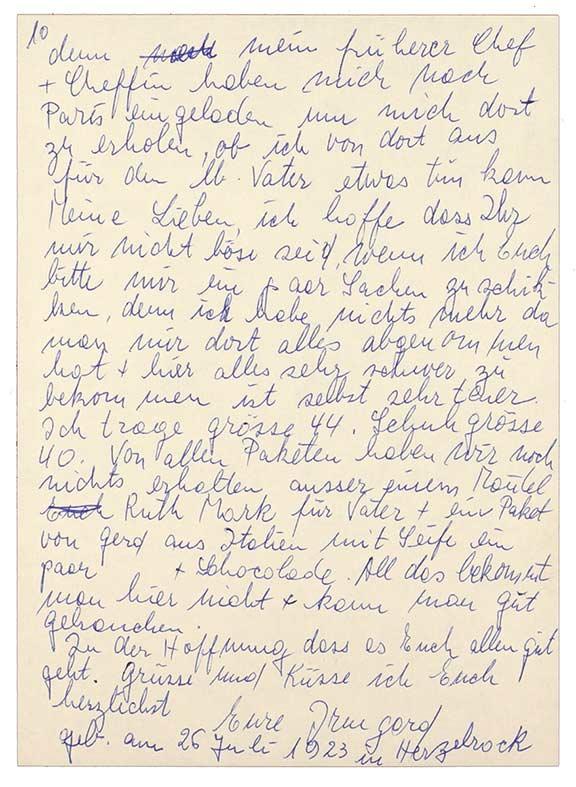 10
denn mein früherer Chef
+ Cheffin haben mich nach
Paris eingeladen um mich dort
zu erholen, ob ich von dort aus
für den lb. Vater etwas tun kann
Meine Lieben, ich hoffe dass Ihr
mir nicht böse seid, wenn ich Euch
bitte mir ein paar Sachen zu schik-
ken, denn ich habe nichts mehr da
man mir dort alles abgenommen
hat + hier alles sehr schwer zu
bekommen ist selbst sehr teuer.
Ich trage grösse 44. Schuhgrösse
40. Von allen Paketen haben wir noch
nichts erhalten ausser einem Mantel
Ruth Mark für Vater + ein Paket
von Gerd aus Italien mit Seife ein
paar + Schocolade. All das bekommt
man hier nicht + kann man gut
gebrauchen.
In der Hoffnung dass es Euch allen gut
geht. Grüsse und Küsse ich Euch
herzlichst
Eure Irmgard
geb. am 26 Juli 1923 in Herzebrock